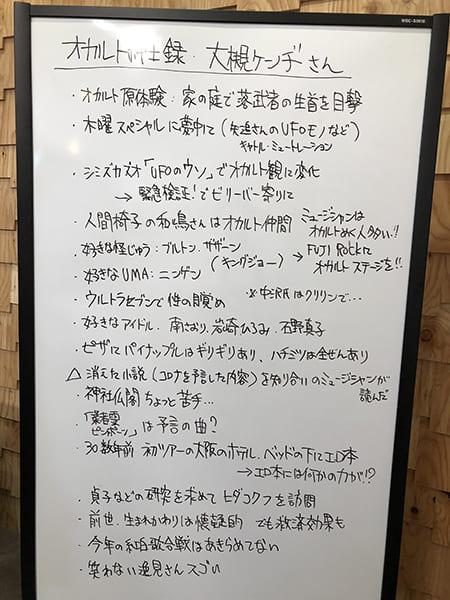 オカルト紳士録・大槻ケンヂさん
・オカルト原体験：家の庭で落武者の生首を目撃
・木曜スペシャルに夢中に（矢追さんのUFOモノなど）
キャトル・ミューティレーション
・シミズカズオ「UFOのウソ」でオカルト観に変化
→ 緊急検証！でビリーバー寄りに
・人間椅子の和嶋さんはオカルト仲間
ミュージシャンは
オカルトめく人多い!!
→ FUJI ROCKに
オカルトステージを!!
・好きな怪じゅう：ブルトン．ザザーン
（キングジョー）
・好きなUMA：ニンゲン
・ウルトラセブンで性の目覚め
※中沢氏はクリリンで…
・好きなアイドル．南さおり、岩崎ひろみ．石野真子
・ピザにパイナップルはギリギリあり、ハチミツは全ぜんあり
△ 消えた小説（コロナを予言した内容）を知り合いのミュージシャンが
読んだ
・神社仏閣ちょっと苦手…
・
ピンポーン」は予言の曲？
・30数年前 初ツアーの大阪のホテル．ベッドの下にエロ本
→エロ本には何かの力が!?
・貞子などの研究を求めてヒダコクフを訪問
・前世．生まれかわりは懐疑的 でも救済効果も
・今年の紅白歌合戦はあきらめてない
・笑わない逸見さんスゴい